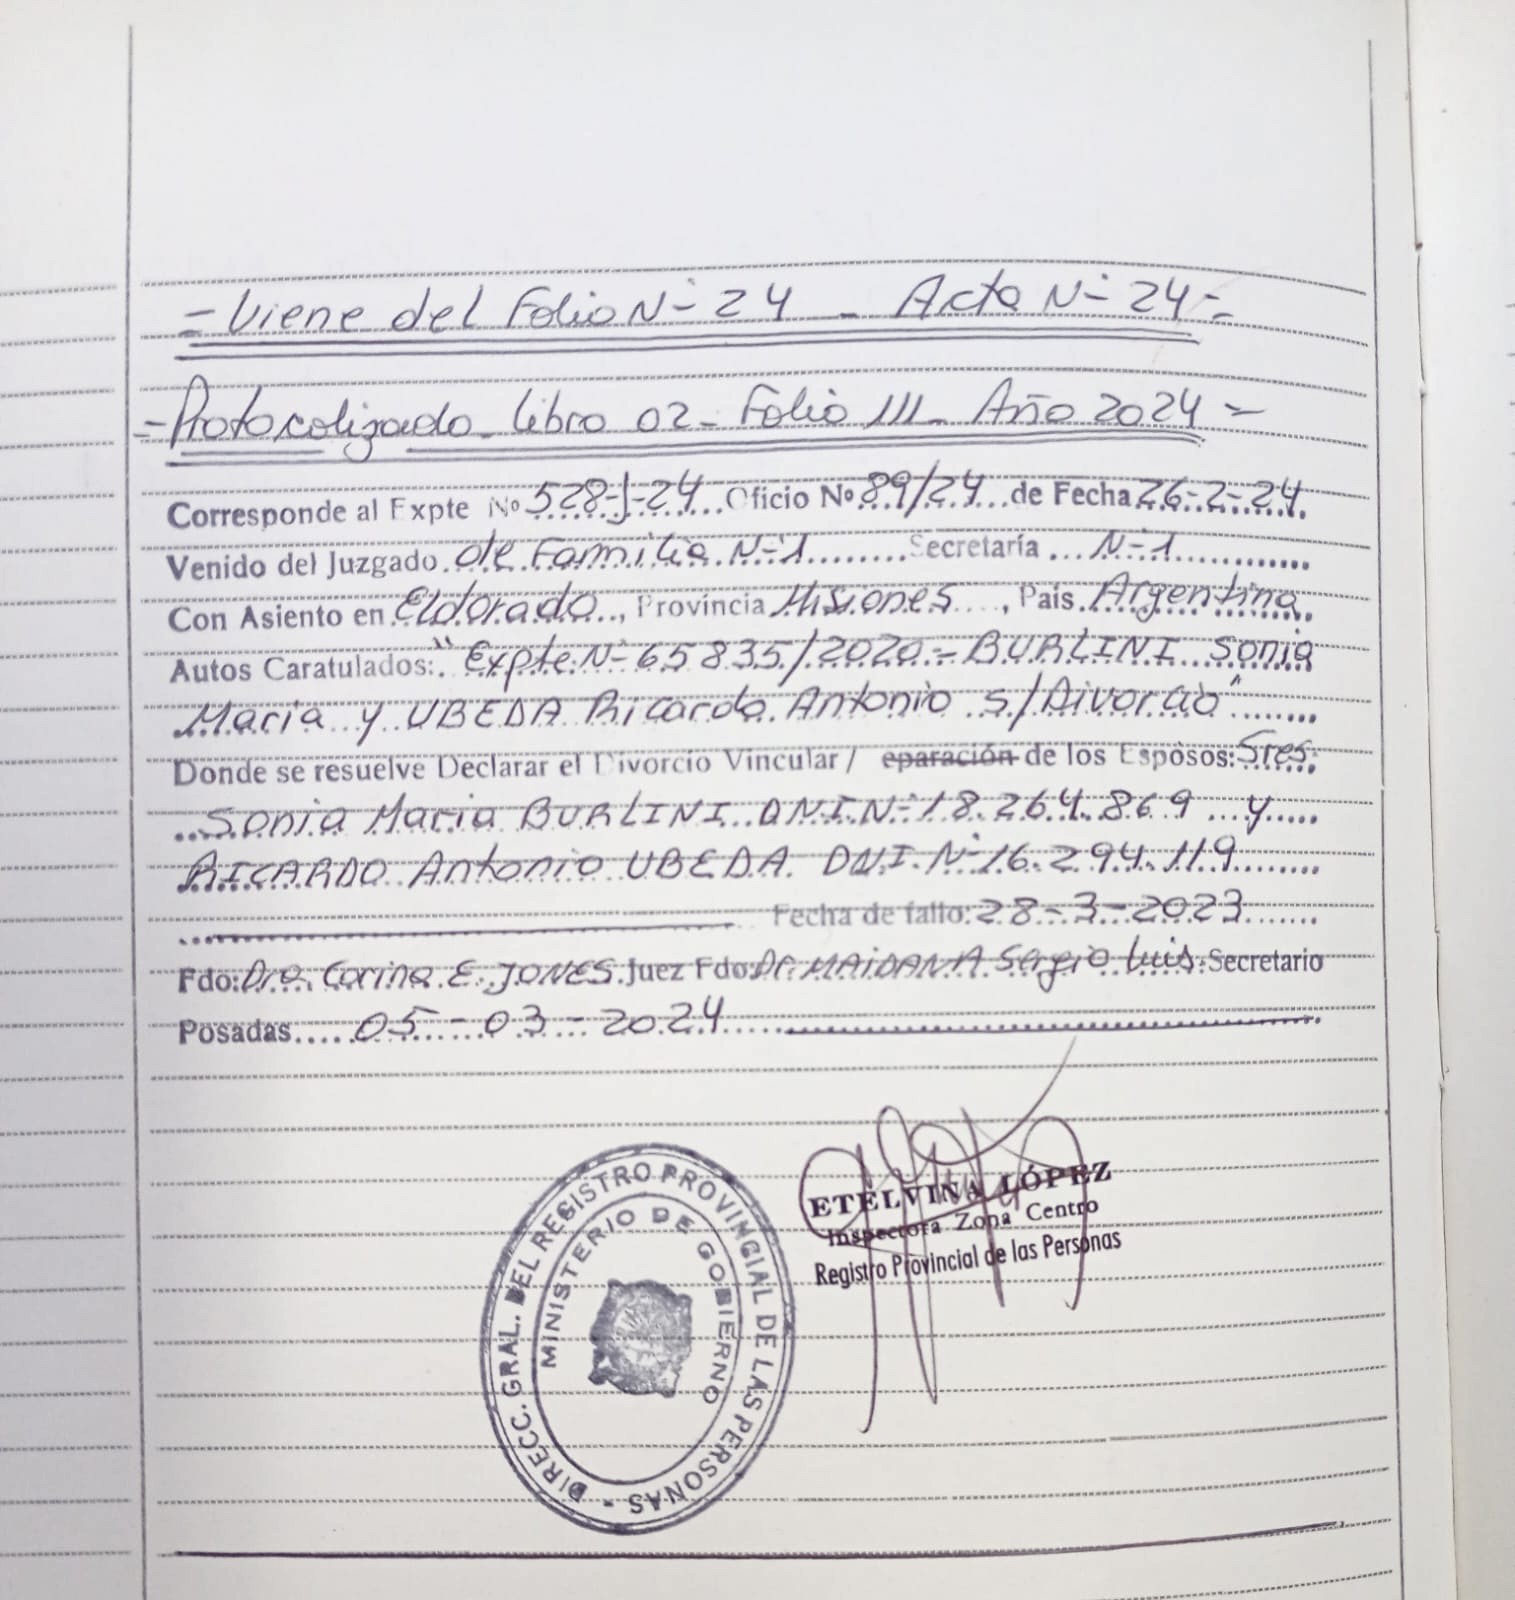 - Viene del Folio Nº 24 - Acta Nº 24 -
- Protocolizado - Libro 02 - Folio 111 - Año 2024 -
Corresponde al Expte Nº 528-J-24 Oficio Nº 89/24 de Fecha 26-2-24
Venido del Juzgado de Familia Nº 1 Secretaría Nº 1
Con Asiento en Eldorado, Provincia Misiones, País Argentina
Autos Caratulados: "Expte Nº 65835/2020 - BURLINI Sonia
Maria y UBEDA Ricardo Antonio s/ Divorcio"
Donde se resuelve Declarar el Divorcio Vincular / eparación de los Esposos: Sres.
Sonia Maria BURLINI D.N.I. Nº 18.264.869 y
RICARDO Antonio UBEDA. DNI. Nº 16.294.119
Fecha de fallo: 28-3-2023
Fdo: Dra. Corina E. JONES. Juez Fdo: Dr. MAIDANA Sergio Luis. Secretario
Posadas 05-03-2024
ETELVINA LÓPEZ
Inspectora Zona Centro
Registro Provincial de las Personas
DIRECC. GRAL. DEL REGISTRO PROVINCIAL DE LAS PERSONAS -
MINISTERIO DE GOBIERNO